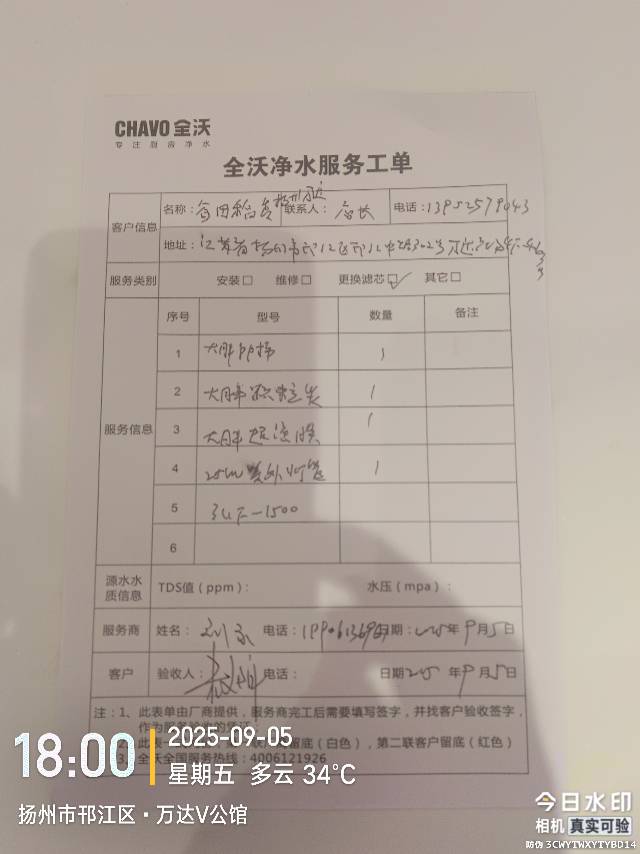 CHAVO 全沃
专注厨房净水
全沃净水服务工单
客户信息
名称： 联系人： 店长 电话：
地址： 江苏省扬州市邗江区邗江中路302号
服务类别 安装□ 维修□ 更换滤芯☑ 其它□
服务信息
序号 型号 数量 备注
1 大胖PP棉 1
2 大胖 1
3 大胖超滤膜 1
4 25W紫外灯管 1
5 3UF-1500
6
源水水质信息 TDS值（ppm）： 水压（mpa）：
服务商 姓名： 电话： 日期：2025年9月5日
客户 验收人： 电话： 日期2025年9月5日
注：1、此表单由厂商提供，服务商完工后需要填写签字，并找客户验收签字，
作为服务验收的凭证。
2、此表一 留底（白色），第二联客户留底（红色）
3、全沃全国服务热线：4006121926
18:00
2025-09-05
星期五 多云 34℃
扬州市邗江区·万达V公馆
今日水印
相机 真实可验
防伪 3CWYTWXYTYBD14